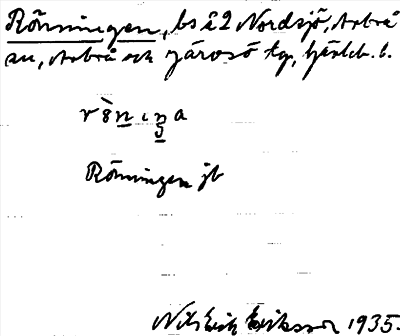 Rönningen, bs i 2 Nordsjö, Arbrå
sn, Arbrå och Järvsö tg, Gävleb. l.
Rönningen jb
Nils Erik Eriksson 1935.